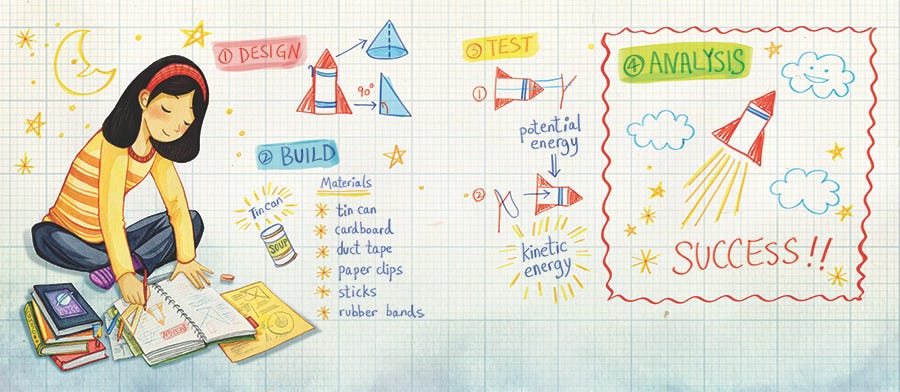 ① DESIGN
90°
② BUILD
Tin can
SOUP
Materials
tin can
cardboard
duct tape
paper clips
sticks
rubber bands
③ TEST
①
potential
energy
②
kinetic
energy
④ ANALYSIS
SUCCESS!!